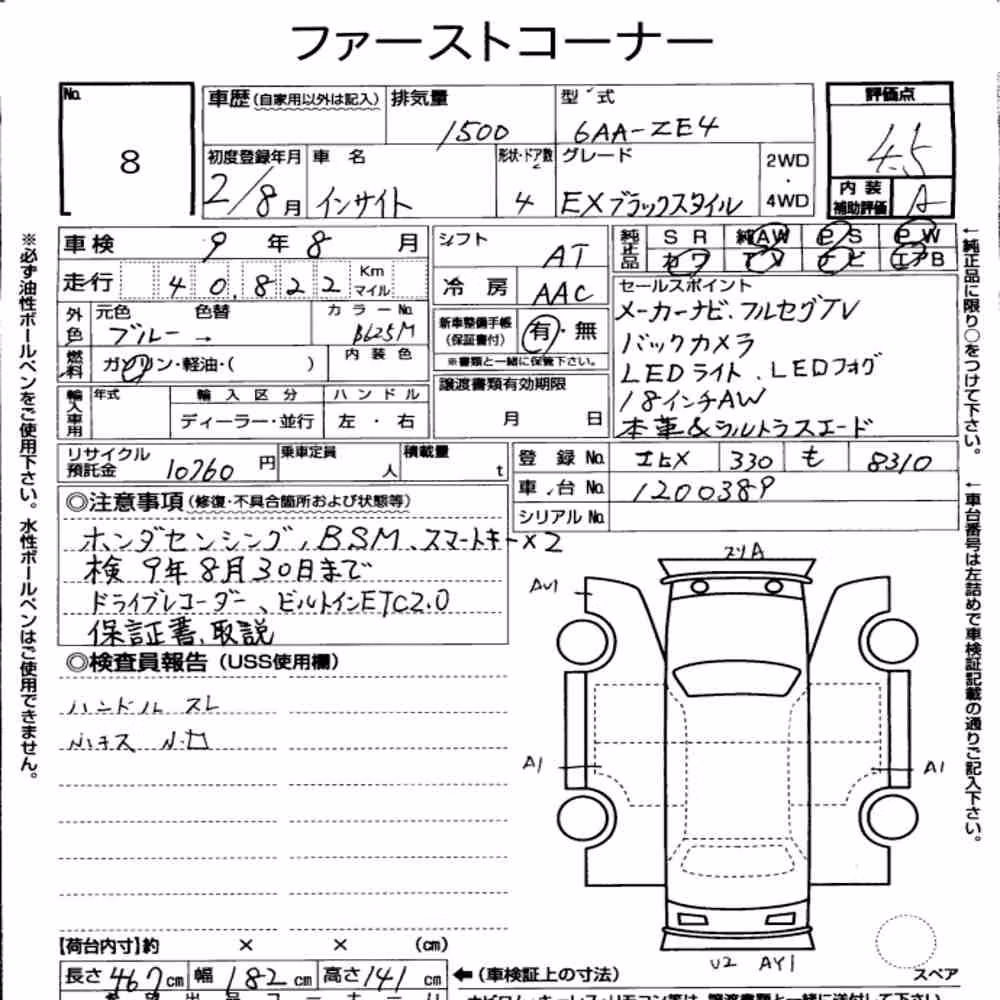 ファーストコーナー
No. 8
車歴(自家用以外は記入) 排気量 1500 型式 6AA-ZE4 評価点 4.5
初度登録年月 2/8月 車名 インサイト 形状・ドア数 4 グレード EXブラックスタイル 2WD・4WD 内装補助評価 A
車検 9年8月 シフト AT 純正品 SR 純AW PS PW
カワ TV ナビ エアB
走行 40,822 Km マイル 冷房 AAC
外色 元色 ブルー → 色替 カラーNo. B625M
新車整備手帳(保証書付) 有・無
※書類と一緒に保管下さい。
燃料 ガソリン・軽油・( ) 内装色
譲渡書類有効期限 月 日
輸入車用 年式 輸入区分 ディーラー・並行 ハンドル 左・右
セールスポイント
メーカーナビ.フルセグTV
バックカメラ
LEDライト、LEDフォグ
18インチAW
本革&ウルトラスエード
リサイクル預託金 10760円 乗車定員 人 積載量 t
登録No. 330 も 8310
車台No. 1200389
シリアルNo.
◎注意事項(修復・不具合箇所および状態等)
ホンダセンシング,BSM、スマートキー×2
検 9年8月30日まで
ドライブレコーダー、ビルトインETC2.0
保証書、取説
◎検査員報告(USS使用欄)
ハンドル スレ
小キズ 小凹
スリA
AU1
A1
A1
U2 AY1
スペア
【荷台内寸】約 × × (cm)
長さ 467cm 幅 182cm 高さ 141cm ←(車検証上の寸法)
※必ず油性ボールペンをご使用下さい。水性ボールペンはご使用できません。
←純正品に限り○をつけて下さい。
←車台番号は左詰めで車検証記載の通りご記入下さい。